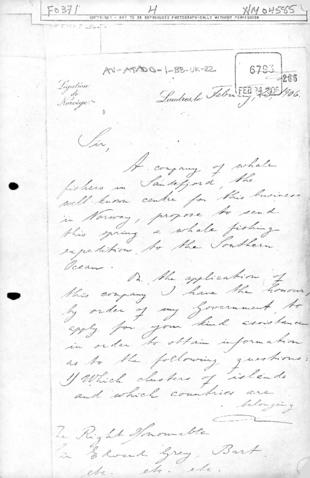 F0371
4
COPYRIGHT - NOT TO BE REPRODUCED PHOTOGRAPHICALLY WITHOUT PERMISSION
AN-APADO-1-BB-UK-22
6783
Légation
de
Norvège
Londres, le February 1906.
Sir,
A company of whale
fishers in Sandefjord, the
well known centre for this business
in Norway, propose to send
this spring a whale fishing
expedition to the Southern
Ocean.
On the application of
this company I have the honour
by order of my Government, to
apply for your kind assistance
in order to obtain information
as to the following questions:
1) Which clusters of islands
and which countries are
belonging
The Right Honourable
Sir Edward Grey, Bart.
etc. etc. etc.